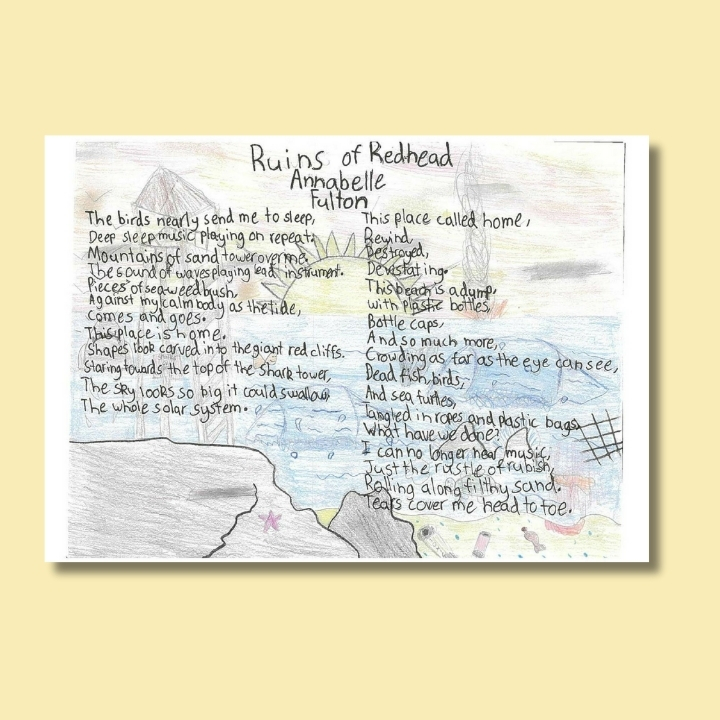 Ruins of Redhead
Annabelle
Fulton
The birds nearly send me to sleep,
Deep sleep music playing on repeat.
Mountains of sand tower over me.
The sound of waves playing lead instrument.
Pieces of seaweed bush,
Against my calm body as the tide,
comes and goes.
This place is home.
Shapes look carved into the giant red cliffs.
Staring towards the top of the shark tower,
The sky looks so big it could swallow
The whole solar system.
This place called home,
Rewind,
Destroyed,
Devistating.
This beach is a dump,
with plastic bottles,
Bottle caps,
And so much more,
Crowding as far as the eye can see,
Dead fish, birds,
And sea turtles,
Tangled in ropes and plastic bags.
What have we done?
I can no longer hear music,
Just the rustle of rubish,
Rolling along filthy sand.
Tears cover me head to toe.